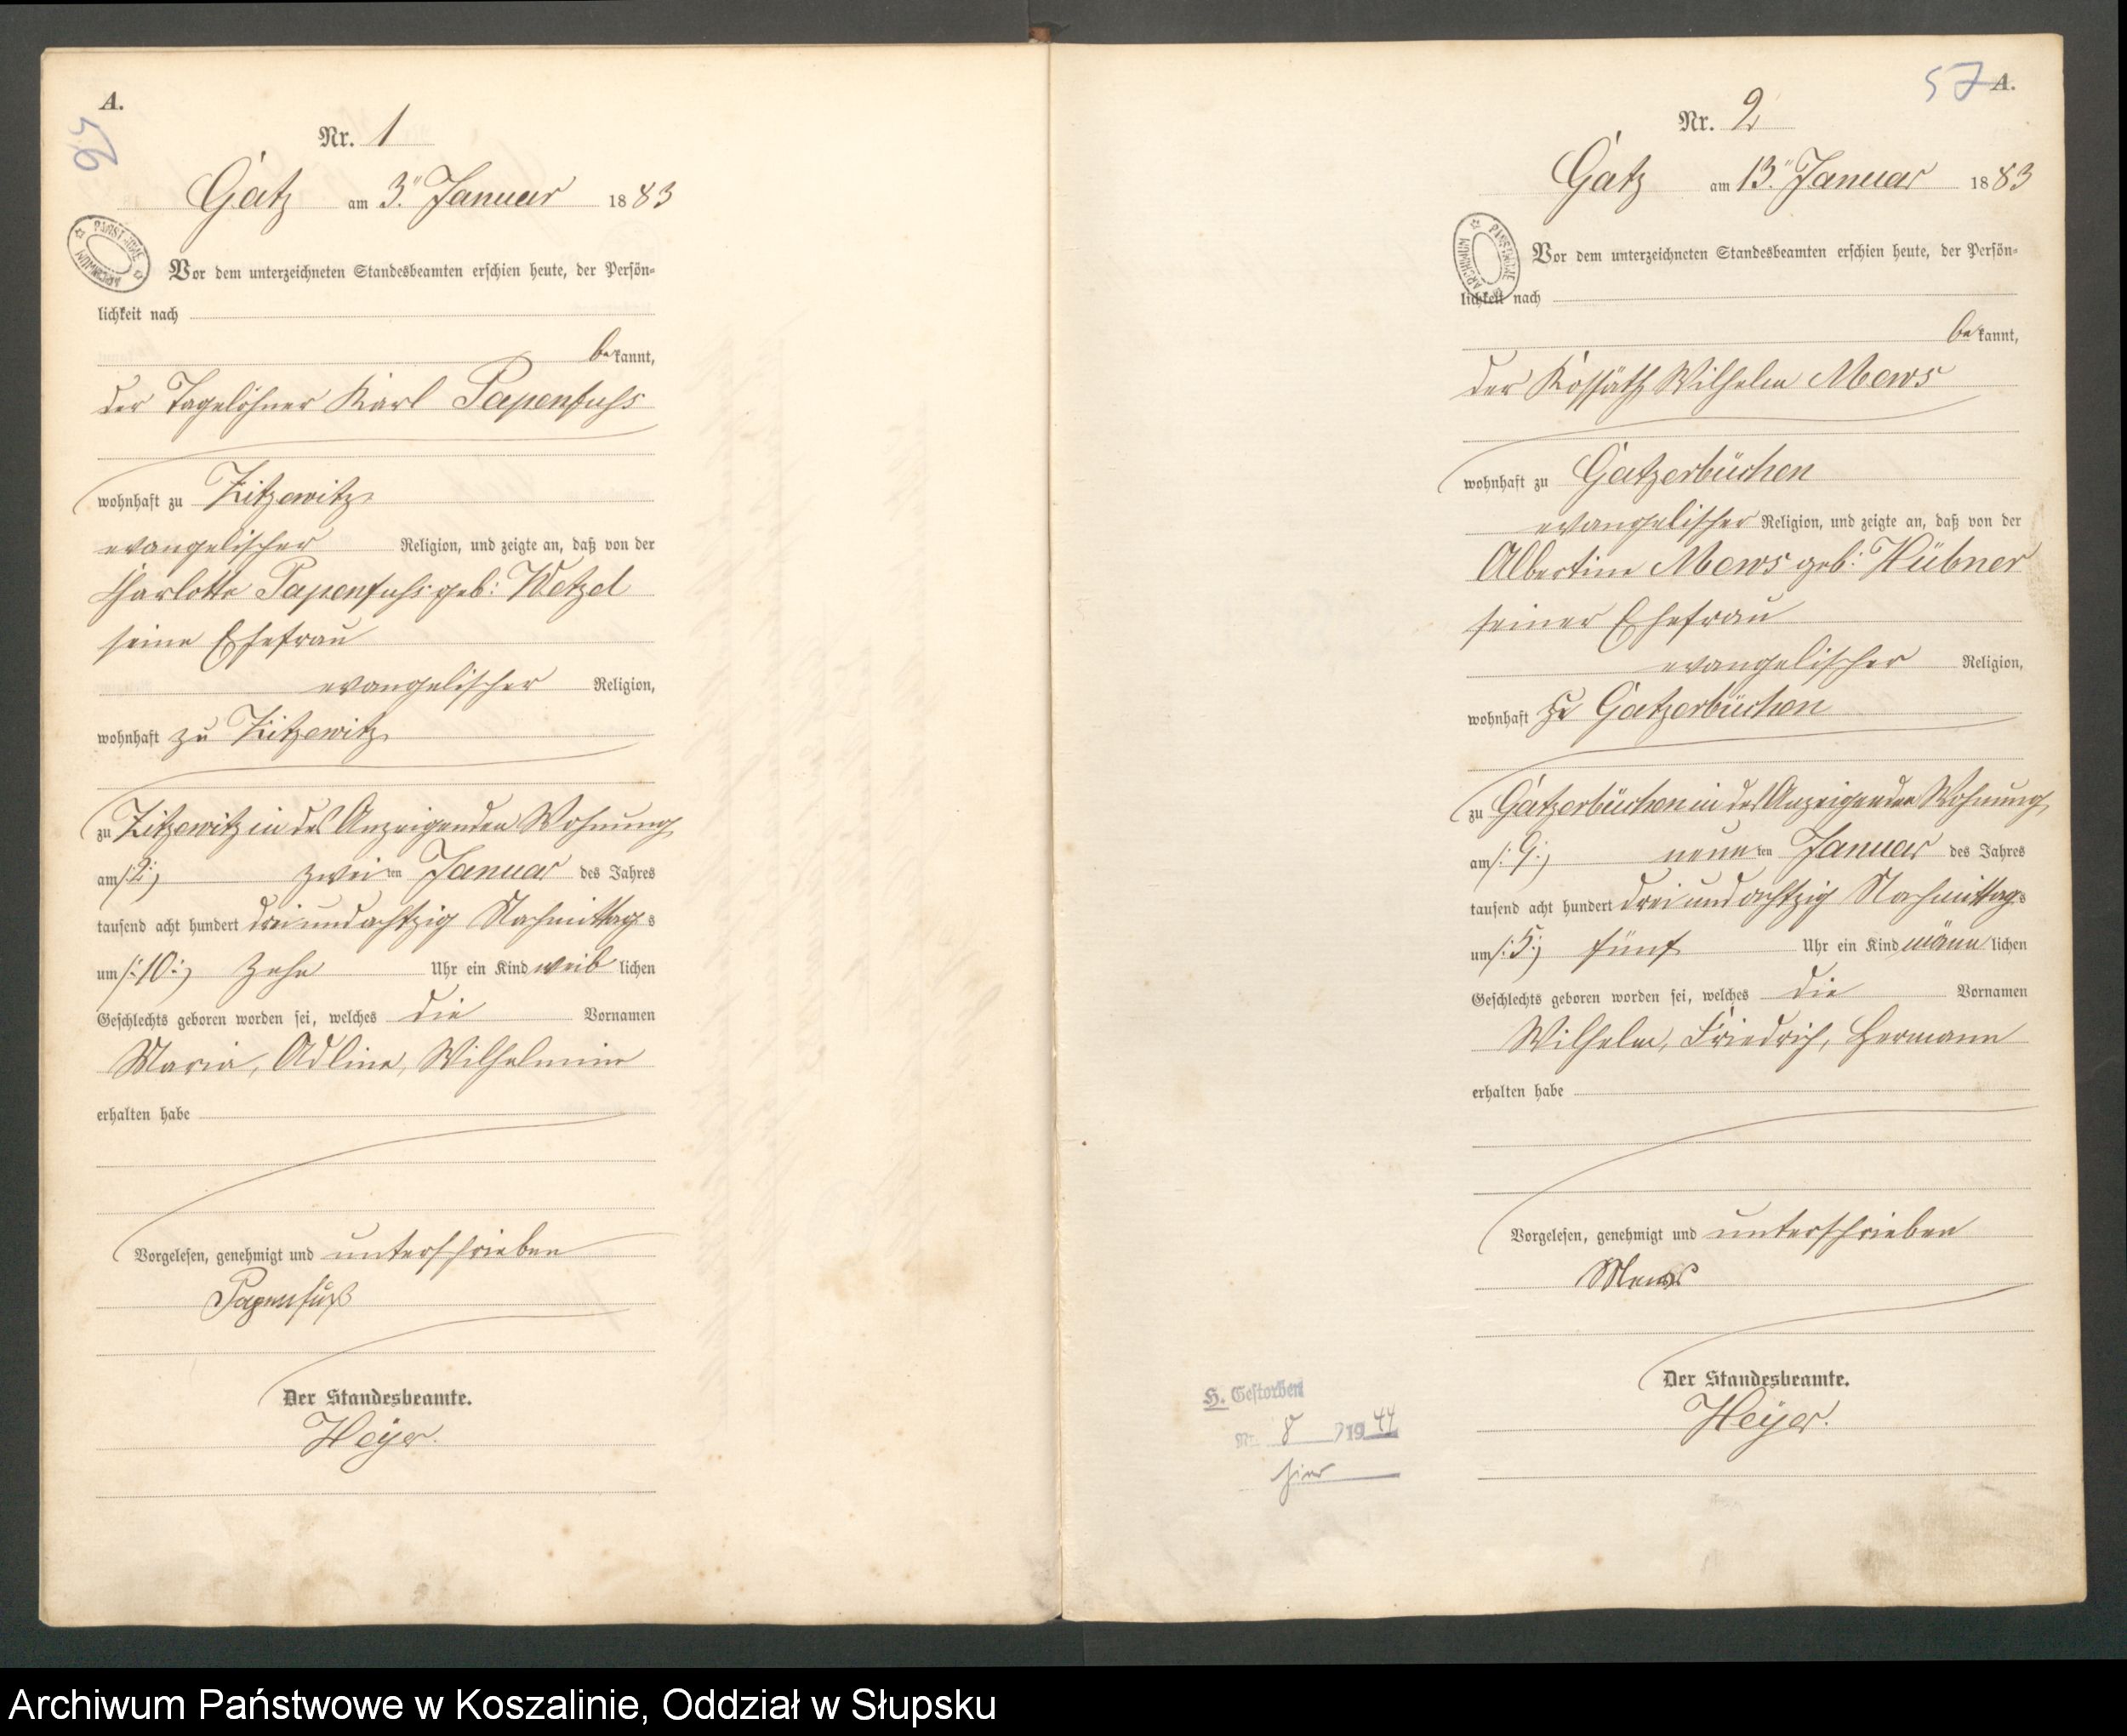 A.
Nr. 1
Gatz am 3. Januar 1883
Vor dem unterzeichneten Standesbeamten erschien heute, der Persön-
lichkeit nach
bekannt,
der Tagelöhner Karl Papenfuhs
wohnhaft zu Zitzewitz
evangelischer Religion, und zeigte an, daß von der
Charlotte Papenfuhs geb: Wetzel
seine Ehefrau
evangelischer Religion,
wohnhaft zu Zitzewitz
zu Zitzewitz in des Anzeigenden Wohnung
am /:2:/ zweiten Januar des Jahres
tausend acht hundert drei und achtzig Nachmittags
um /:10:/ Zehn Uhr ein Kind weiblichen
Geschlechts geboren worden sei, welches die Vornamen
Maria, Adline, Wilhelmine
erhalten habe
Vorgelesen, genehmigt und unterschrieben
Papenfuß
Der Standesbeamte.
Heyer.
57 A.
Nr. 2
Gatz am 13. Januar 1883
Vor dem unterzeichneten Standesbeamten erschien heute, der Persön-
lichkeit nach
bekannt,
der Kossäth Wilhelm Mews
wohnhaft zu Gatzerbüchen
evangelischer Religion, und zeigte an, daß von der
Albertine Mews geb: Hübner
seiner Ehefrau
evangelischer Religion,
wohnhaft zu Gatzerbüchen
zu Gatzerbüchen in des Anzeigenden Wohnung
am /:9:/ neunten Januar des Jahres
tausend acht hundert drei und achtzig Nachmittags
um /:5:/ fünf Uhr ein Kind männlichen
Geschlechts geboren worden sei, welches die Vornamen
Wilhelm, Friedrich, Hermann
erhalten habe
Vorgelesen, genehmigt und unterschrieben
Mews
Der Standesbeamte.
Heyer.
H. Gestorben
Nr. 8 /1944
hier
Archiwum Państwowe w Koszalinie, Oddział w Słupsku